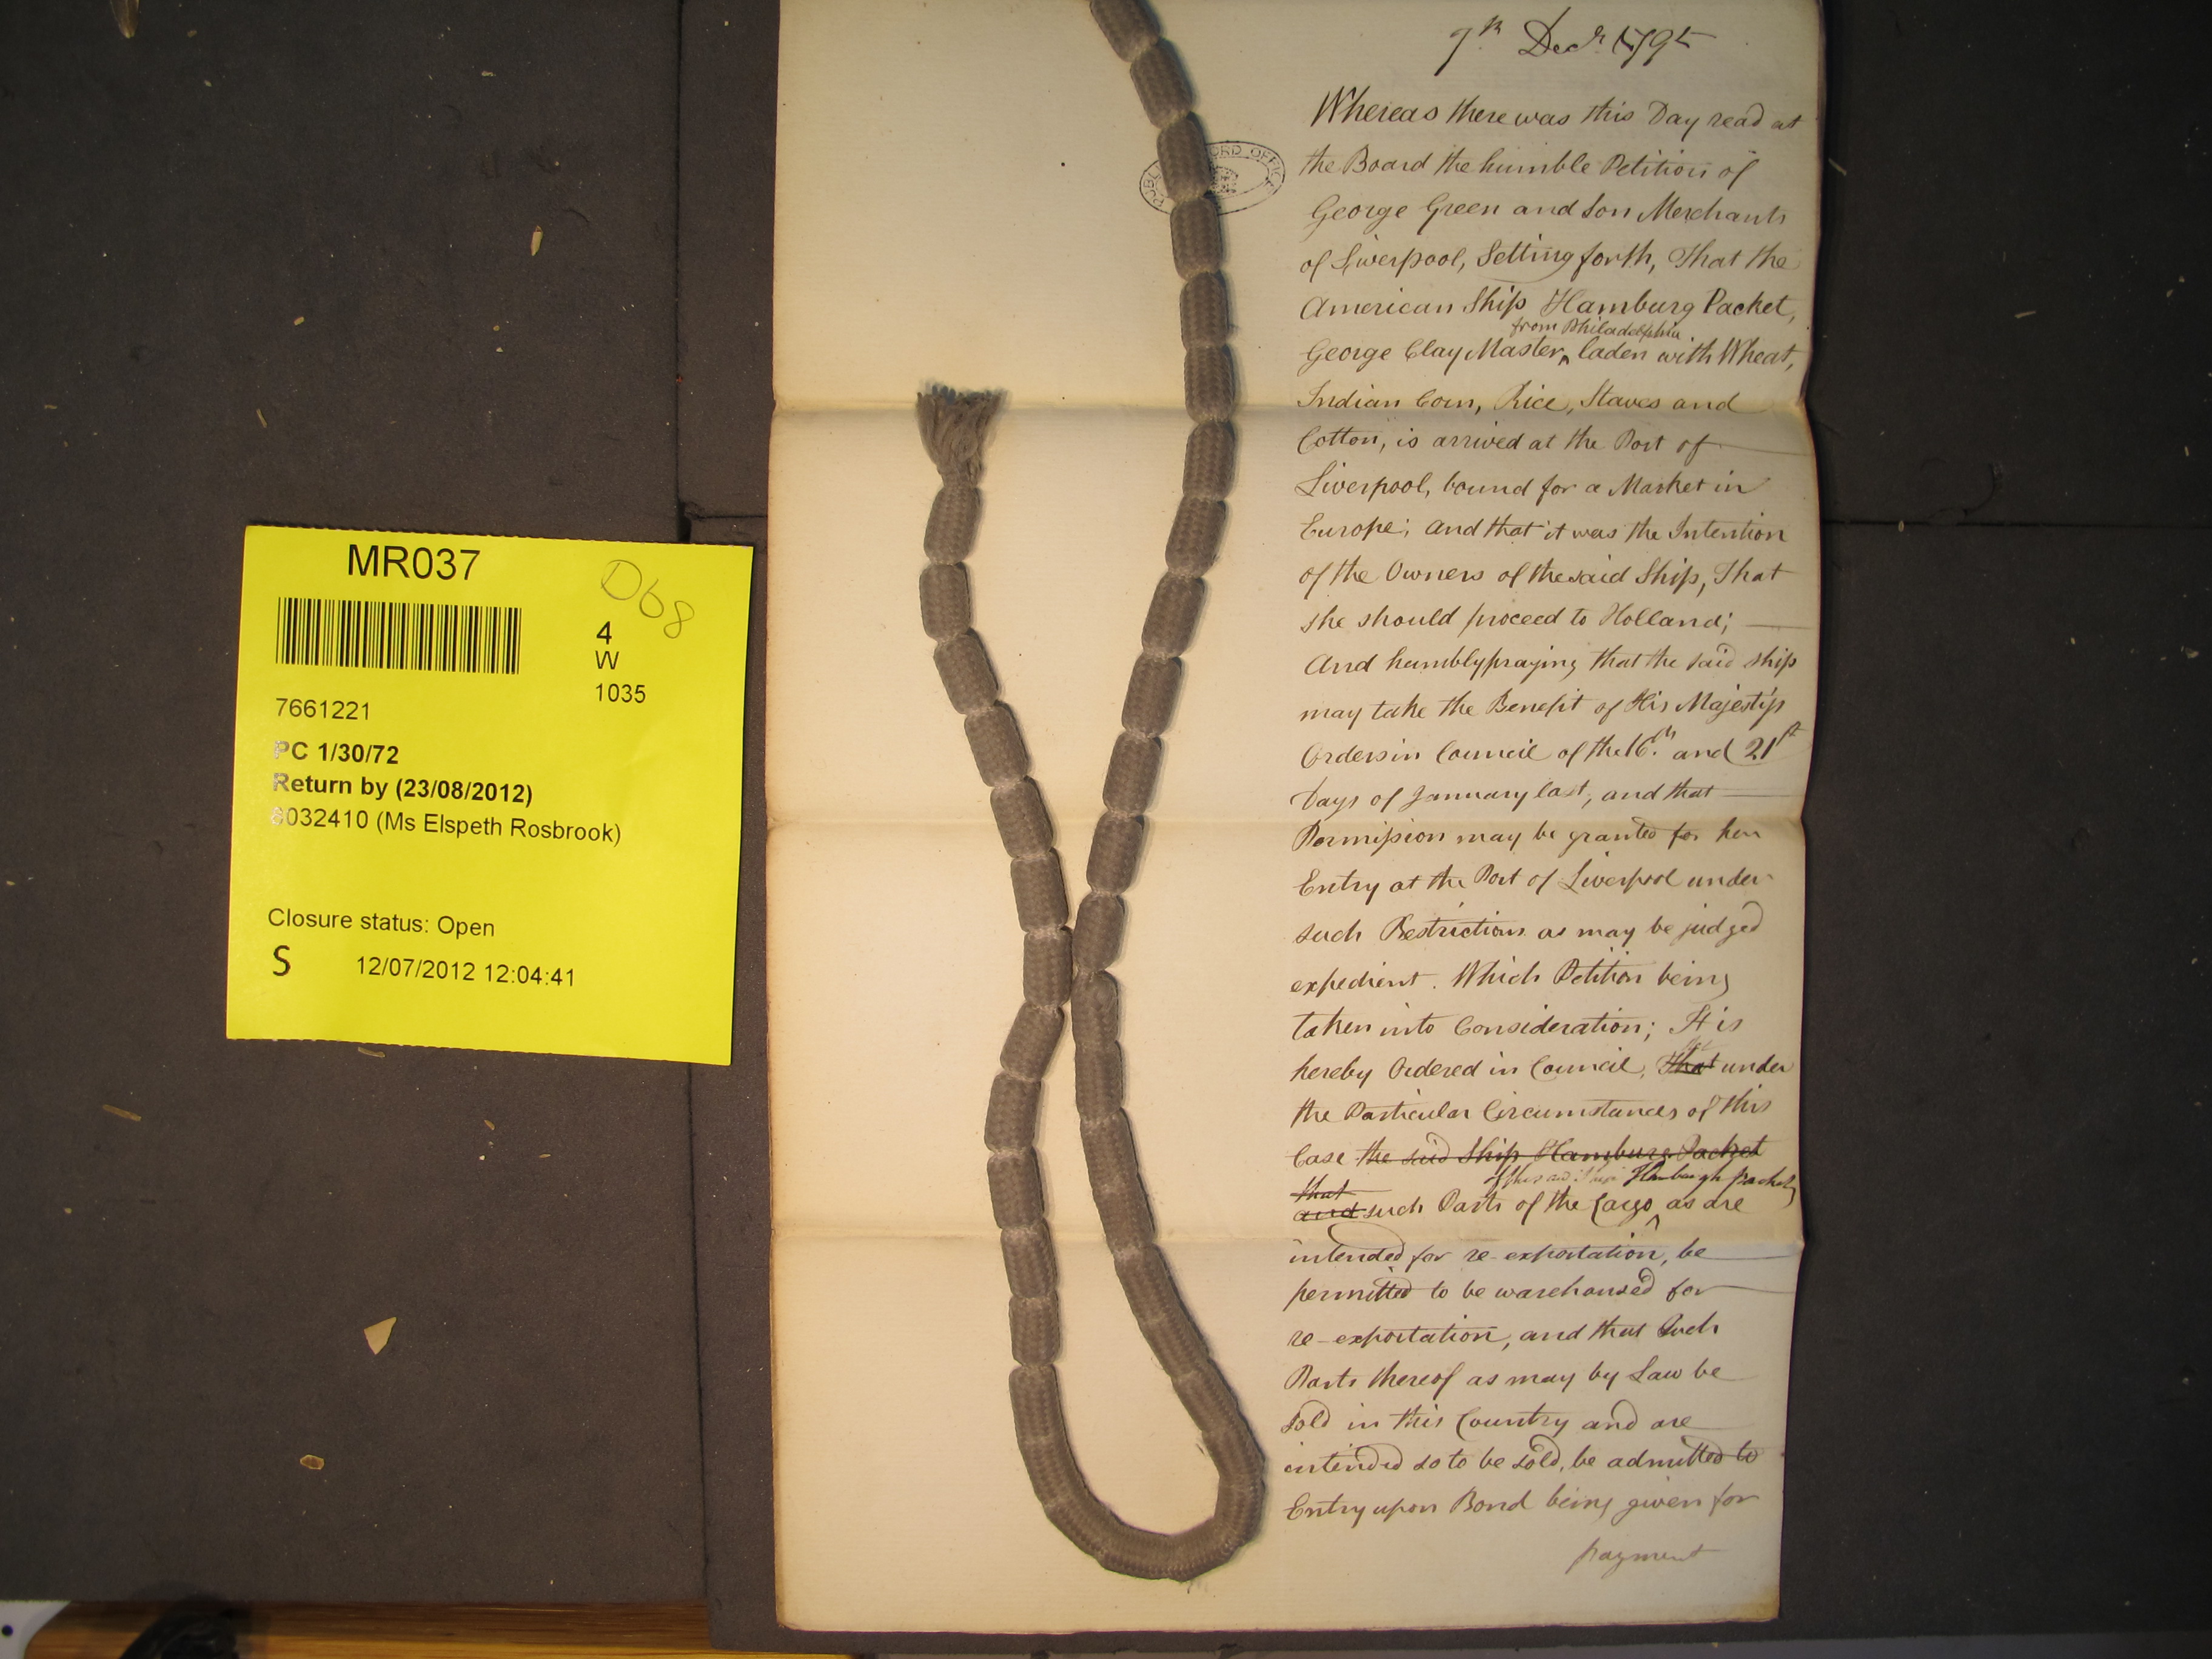 MR037
D68
4
W
1035
7661221
PC 1/30/72
Return by (23/08/2012)
032410 (Ms Elspeth Rosbrook)
Closure status: Open
S 12/07/2012 12:04:41
7th Decr 1795
Whereas there was this Day read at
the Board the humble Petition of
George Green and Son Merchants
of Liverpool, Setting forth, That the
American Ship Hamburg Packet,
from Philadelphia
George Clay Master, ^ laden with Wheat,
Indian Corn, Rice, Staves and
Cotton, is arrived at the Port of
Liverpool, bound for a Market in
Europe; and that it was the Intention
of the Owners of the said Ship, That
she should proceed to Holland;
And humbly praying that the said ship
may take the Benefit of His Majestys
Orders in Council of the 16th and 21st
Days of January last, and that
Permission may be granted for her
Entry at the Port of Liverpool under
such Restrictions as may be judged
expedient. Which Petition being
taken into Consideration; It is
hereby Ordered in Council, That under
the Particular Circumstances of this
Case the said Ship Hamburg Packet
of the said Ship Hamburgh packet
that
and such Parts of the Cargo ^ as are
intended for re-exportation, be
permitted to be warehoused for
re-exportation, and that Such
Parts thereof as may by Law be
sold in this Country and are
intended so to be sold, be admitted to
Entry upon Bond being given for
payment